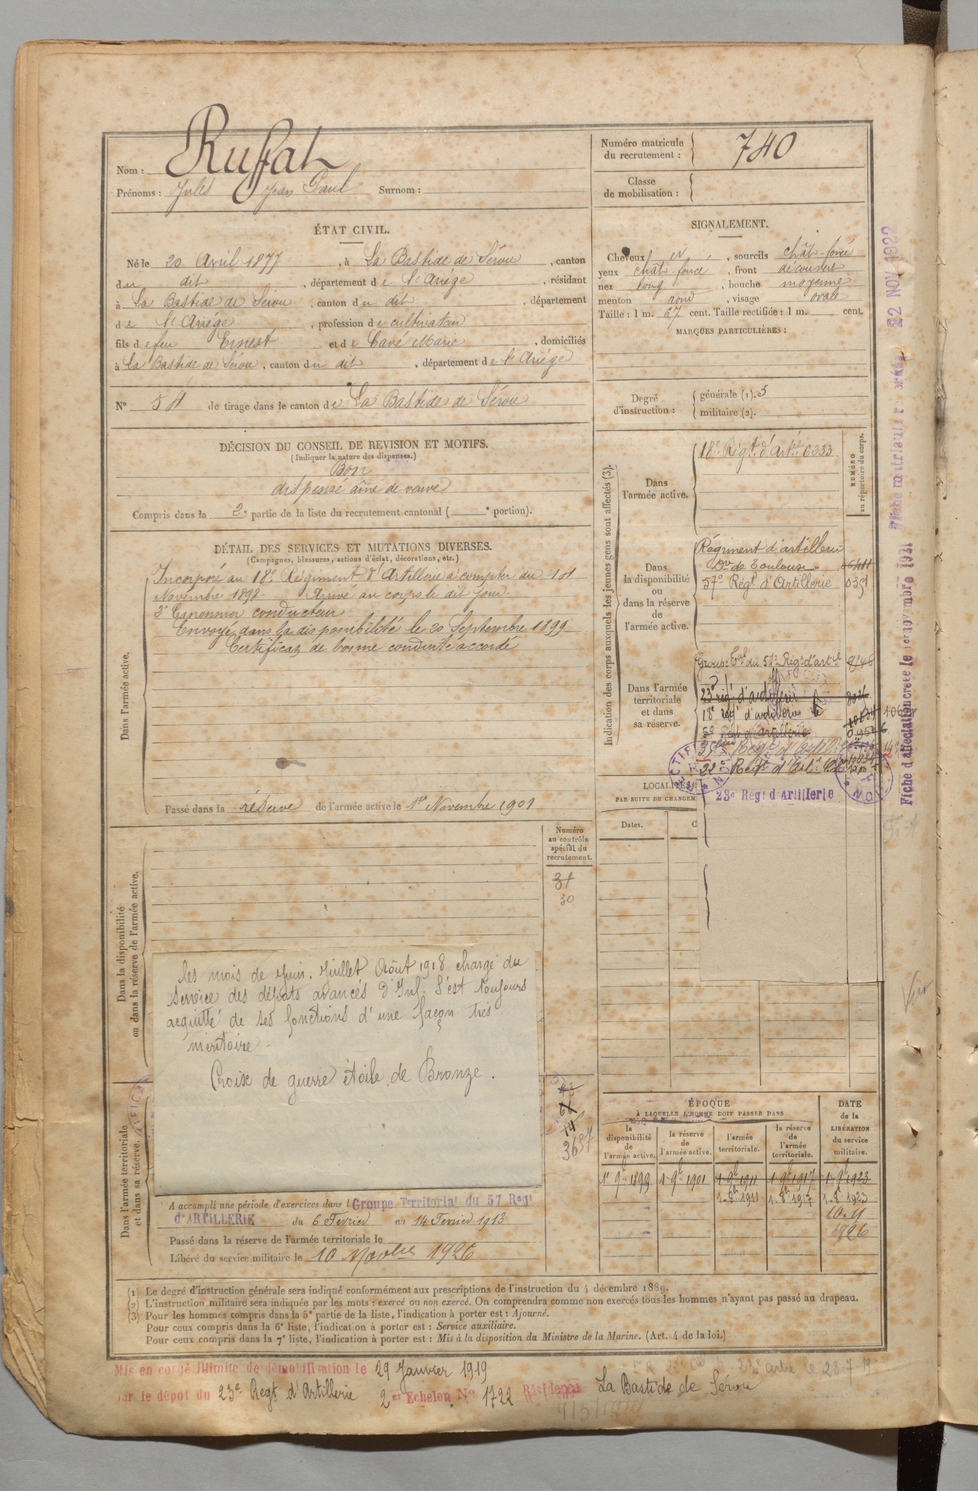 Nom : Rufat
Prénoms : Jules Jean Paul Surnom :
Numéro matricule du recrutement : 740
Classe de mobilisation :
ÉTAT CIVIL.
Né le 20 Avril 1877, à La Bastide de Sérou, canton
du dit, département de l'Ariège, résidant
à La Bastide de Sérou, canton du dit, département
de l'Ariège, profession de cultivateur
fils de feu Ernest et de Cavé Marie, domiciliés
à La Bastide de Sérou, canton du dit, département de l'Ariège
N° 54 de tirage dans le canton de La Bastide de Sérou
SIGNALEMENT.
Cheveux, sourcils chât-foncé
yeux chât foncé, front découvert
nez long, bouche moyenne
menton rond, visage ovale
Taille : 1 m. 67 cent. Taille rectifiée : 1 m. cent.
MARQUES PARTICULIÈRES :
Degré d'instruction : générale (1). 3
militaire (2).
DÉCISION DU CONSEIL DE REVISION ET MOTIFS.
(Indiquer la nature des dispenses.)
Bon
dispensé aîné de veuve
Compris dans la 2e partie de la liste du recrutement cantonal ( e portion).
DÉTAIL DES SERVICES ET MUTATIONS DIVERSES.
(Campagnes, blessures, actions d'éclat, décorations, etc.)
Dans l'armée active.
Incorporé au 18e Régiment d'Artillerie à compter du 1er
Novembre 1898. Arrivé au corps le dit jour
2e Canonnier conducteur
Envoyé dans la disponibilité le 20 Septembre 1899
Certificat de bonne conduite accordé
Passé dans la réserve de l'armée active le 1er Novembre 1901
Indication des corps auxquels les jeunes gens sont affectés (3).
NUMÉRO au répertoire du corps.
Dans l'armée active.
18e Régt d'Artie 6333
Dans la disponibilité ou dans la réserve de l'armée active.
Régiment d'artillerie
de Toulouse
57e Régt d'Artillerie
Dans l'armée territoriale et dans sa réserve.
Groupe Teral du 57e Régt d'artie
23e rég d'artillerie
18e rég d'artillerie
23e Régt d'Artillerie
Fiche d'affectation créée le 1er novembre 1931
22 NOV 1922
LOCALITÉS
PAR SUITE DE CHANGEM
Dates.
Dans la disponibilité ou dans la réserve de l'armée active.
Numéro au contrôle spécial du recrutement.
31
30
les mois de Juin, Juillet Août 1918 chargé du
service des dépôts avancés d'Inf. S'est toujours
acquitté de ses fonctions d'une façon très
méritoire.
Croix de guerre étoile de Bronze.
Dans l'armée territoriale et dans sa réserve.
A accompli une période d'exercices dans l Groupe Territorial du 57 Régt
d'ARTILLERIE du 6 Fevrier au 14 Fevrier 1913
Passé dans la réserve de l'armée territoriale le
Libéré du service militaire le 10 Novbre 1926
ÉPOQUE
À LAQUELLE L'HOMME DOIT PASSER DANS
la disponibilité de l'armée active.
la réserve de l'armée active.
l'armée territoriale.
la réserve de l'armée territoriale.
DATE de la LIBÉRATION du service militaire.
1er 9bre 1899 1 9bre 1901 1 9bre 1911 1 9bre 1917 1 9bre 1923
1 8bre 1911 1 8bre 1917 1 8bre 1923
10.11
1926
(1) Le degré d'instruction générale sera indiqué conformément aux prescriptions de l'instruction du 4 décembre 1889.
(2) L'instruction militaire sera indiquée par les mots : exercé ou non exercé. On comprendra comme non exercés tous les hommes n'ayant pas passé au drapeau.
(3) Pour les hommes compris dans la 5e partie de la liste, l'indication à porter est : Ajourné.
Pour ceux compris dans la 6e liste, l'indication à porter est : Service auxiliaire.
Pour ceux compris dans la 7e liste, l'indication à porter est : Mis à la disposition du Ministre de la Marine. (Art. 4 de la loi.)
Mis en congé illimité de démobilisation le 29 Janvier 1919
par le dépôt du 23e Regt d'Artillerie 2me Echelon No 1722 Résidence La Bastide de Sérou